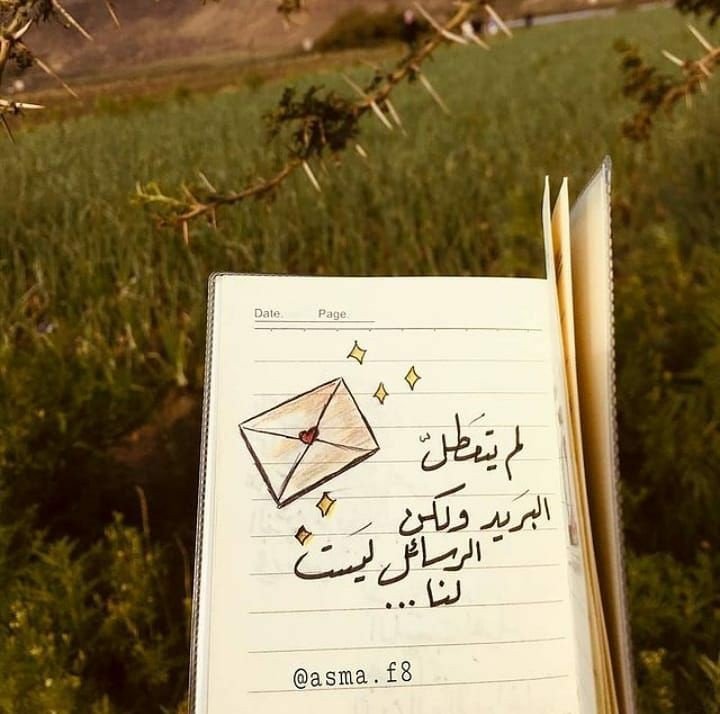 Date. Page.
لم يتعَطلّ
البرَيد ولكن
الرسائل ليسَت
لنا ...
@asma.f8